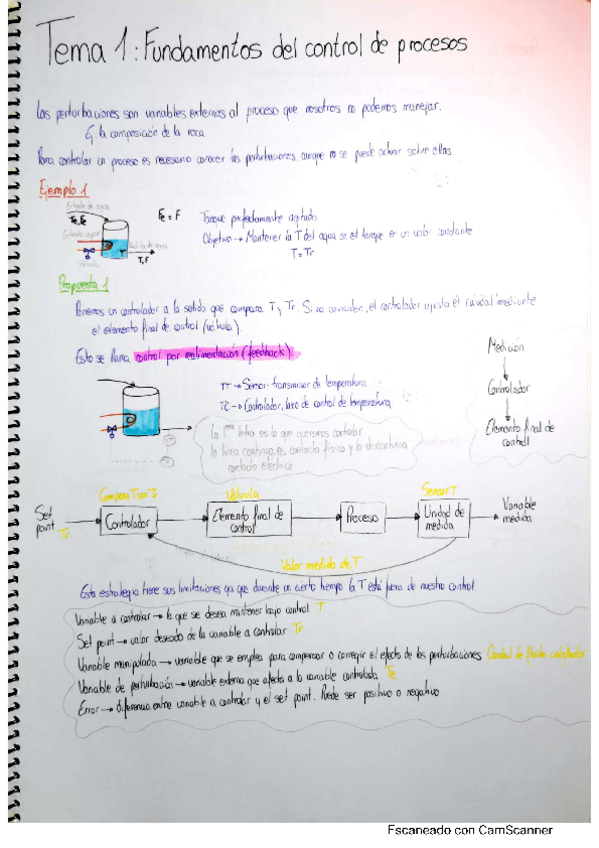 Tema 1: Fundamentos del control de procesos
Las perturbaciones son variables externas al proceso que nosotros no podemos manejar.
la composición de la roca
Para controlar un proceso es necesario conocer las perturbaciones aunque no se puede actuar sobre ellas
Ejemplo 1
Entrada de agua
Te, Fe
Fe = F
Tanque perfectamente agitado
Objetivo → Mantener la T del agua en el tanque en un valor constante
T = Tr
Entrada vapor
Salida de agua
T
T, F
Válvula
Propuesta 1
Ponemos un controlador a la salida que compara T y Tr. Si no coinciden, el controlador ajusta el caudal mediante
el elemento final de control (válvula).
Esto se llama control por realimentación (feedback)
Medición
Controlador
Elemento final de
control
TT → Sensor-transmisor de temperatura
TC → Controlador, lazo de control de temperatura
TT
TC
La 1ª letra es lo que queremos controlar
La línea continua es contacto físico y la discontinua
contacto eléctrico
Compara T con Tr
Válvula
Sensor T
Set
point
Tr
Controlador
Elemento final de
control
Proceso
Unidad de
medida
Variable
medida
Valor medido de T
Esta estrategia tiene sus limitaciones ya que durante un cierto tiempo la T está fuera de nuestro control.
Variable a controlar → lo que se desea mantener bajo control T
Set point → valor deseado de la variable a controlar Tr
Variable manipulada → variable que se emplea para compensar o corregir el efecto de las perturbaciones Caudal de fluido calefactor
Variable de perturbación → variable externa que afecta a la variable controlada Te
Error → diferencia entre variable a controlar y el set point. Puede ser positivo o negativo
Escaneado con CamScanner